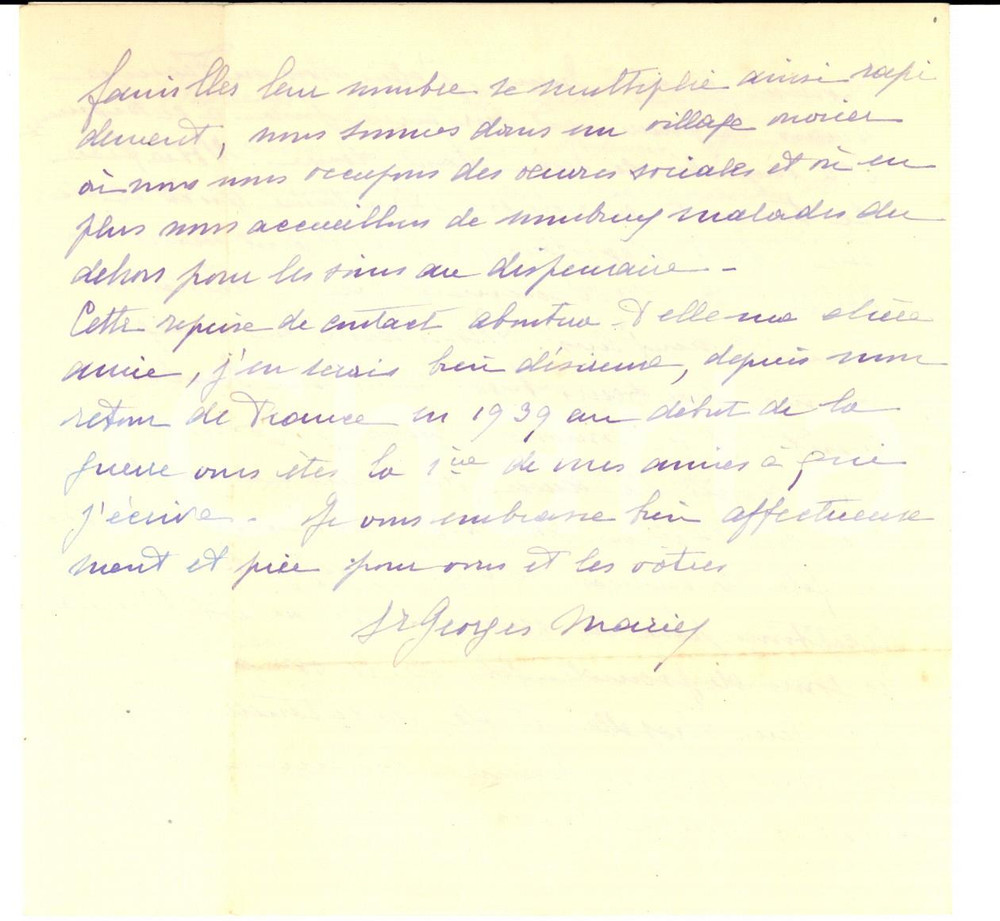 familles leur nombre se multiplie ainsi rapi
dement, nous sommes dans un village minier
où nous nous occupons des oeuvres sociales et où en
plus nous accueillons de nombreux malades du
dehors pour les soins au dispensaire -
Cette reprise de contact aboutira-t'elle ma chère
amie, j'en serais bien désireuse, depuis mon
retour de France en 1939 au début de la
guerre vous êtes la 1ère de mes amies à qui
j'écrive. Je vous embrasse bien affectueuse
ment et prie pour vous et les vôtres
Sr Georges Marie